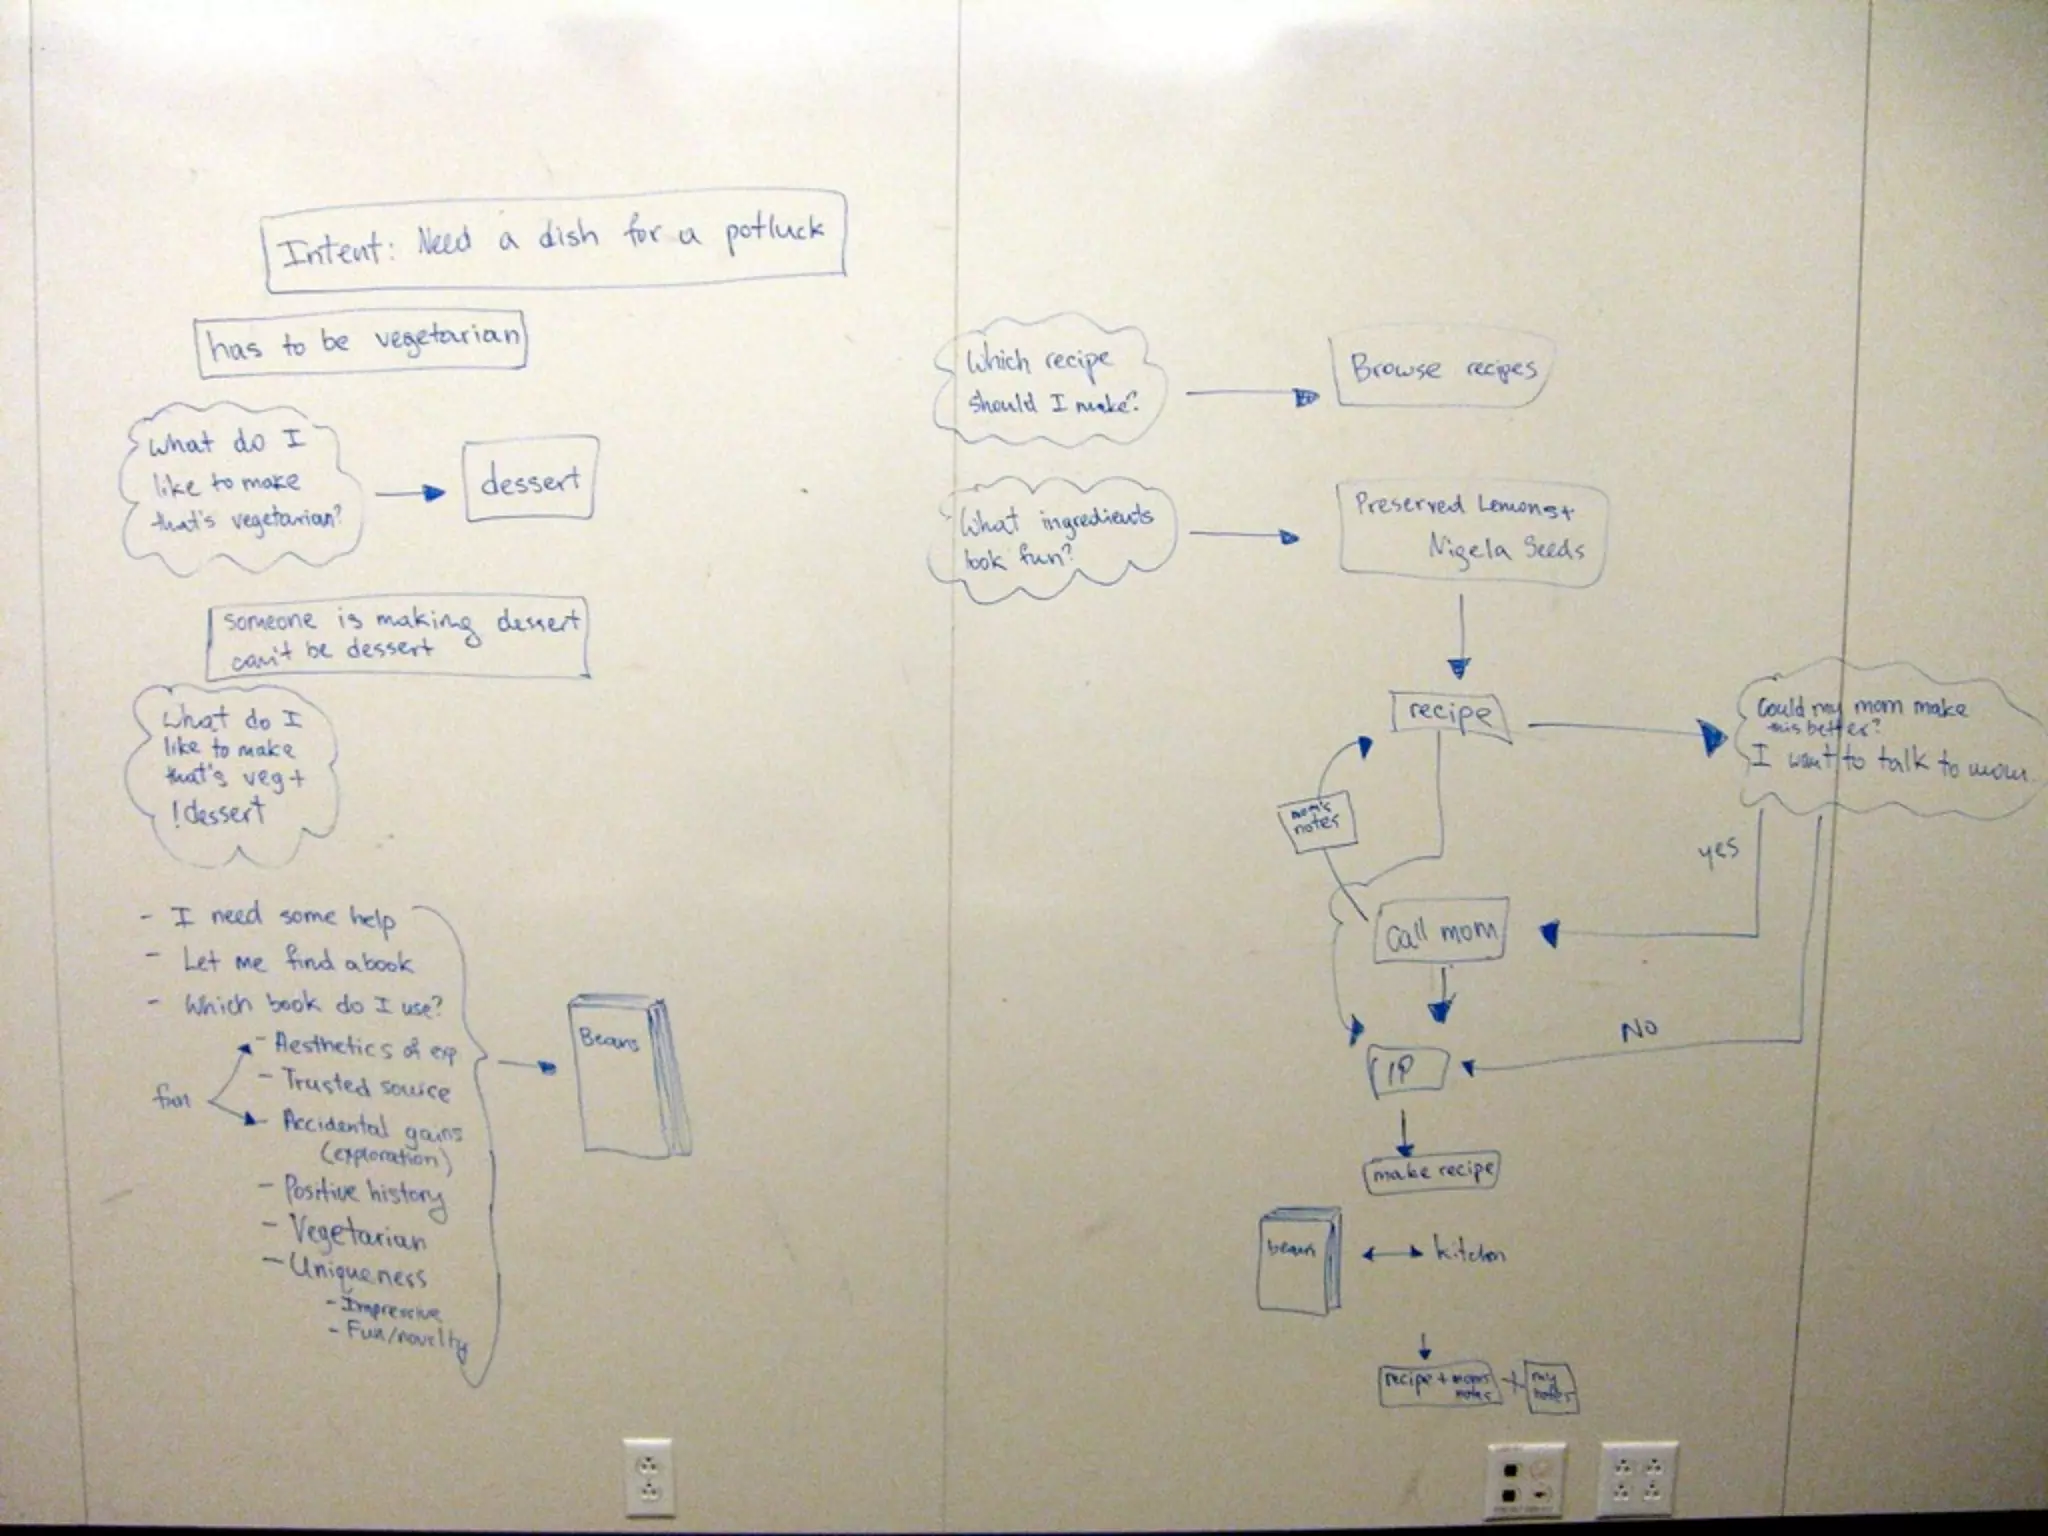 Intent: Need a dish for a potluck
has to be vegetarian
What do I
like to make
that's vegetarian?
dessert
someone is making dessert
can't be dessert
What do I
like to make
that's veg +
!dessert
- I need some help
- Let me find a book
- Which book do I use?
- Aesthetics of exp
- Trusted source
fun
- Accidental gains
(exploration)
- Positive history
- Vegetarian
- Uniqueness
- Impressive
- Fun/novelty
Beans
Which recipe
should I make?
Browse recipes
What ingredients
look fun?
Preserved Lemons +
Nigela Seeds
recipe
Could my mom make
this better?
I want to talk to mom
mom's
notes
yes
Call mom
NO
IP
make recipe
beans
kitchen
recipe + moms
notes
+
my
notes